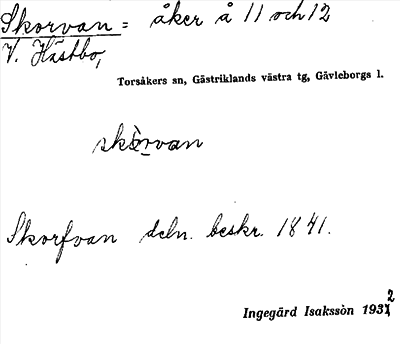 Skorvan = åker å 11 och 12
V. Hästbo,
Torsåkers sn, Gästriklands västra tg, Gävleborgs l.
skòrvan
Skorfvan deln. beskr. 1841.
Ingegärd Isaksson 1932